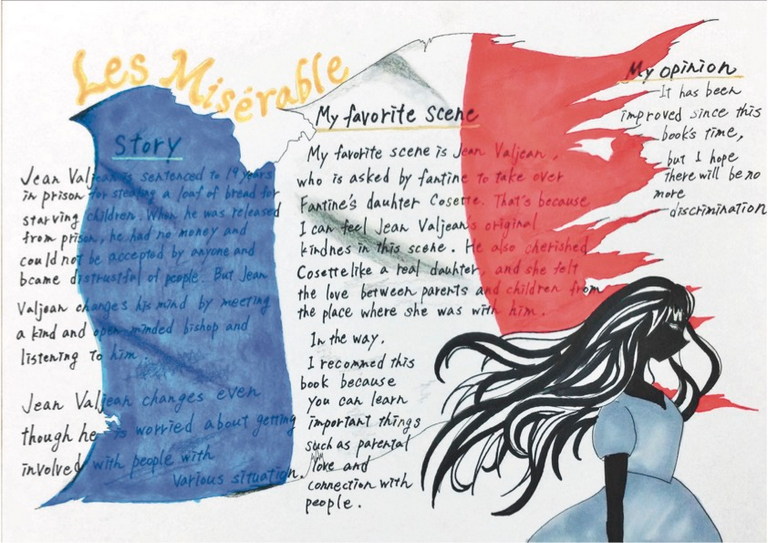 Les Misérable
Story
Jean Valjean is sentenced to 19 years
in prison for stealing a loaf of bread for
starving children. When he was released
from prison, he had no money and
could not be accepted by anyone and
bcame distrustful of people. But Jean
Valjean changes his mind by meeting
a kind and open-minded bishop and
listening to him.
Jean Valjean changes even
though he is worried about getting
involved with people with
various situation.
My favorite scene
My favorite scene is Jean Valjean,
who is asked by fantine to take over
Fantine's dauhter Cosette. That's because
I can feel Jean Valjean's original
kindnes in this scene. He also cherished
Cosette like a real dauhter, and she felt
the love between parents and children from
the place where she was with him.
In the way.
I recommed this
book because
you can learn
important things
such as parental
love and
connection with
people.
My opinion
It has been
improved since this
book's time,
but I hope
there will be no
more
discrimination